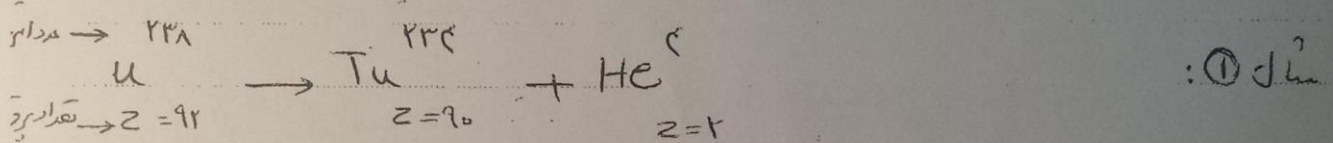 مثال ①:
عدد اتمی → ۲۳۸ ۲۳۴ ۴
U → Tu + He
تعداد پروتون → Z = ۹۲ Z = ۹۰ Z = ۲